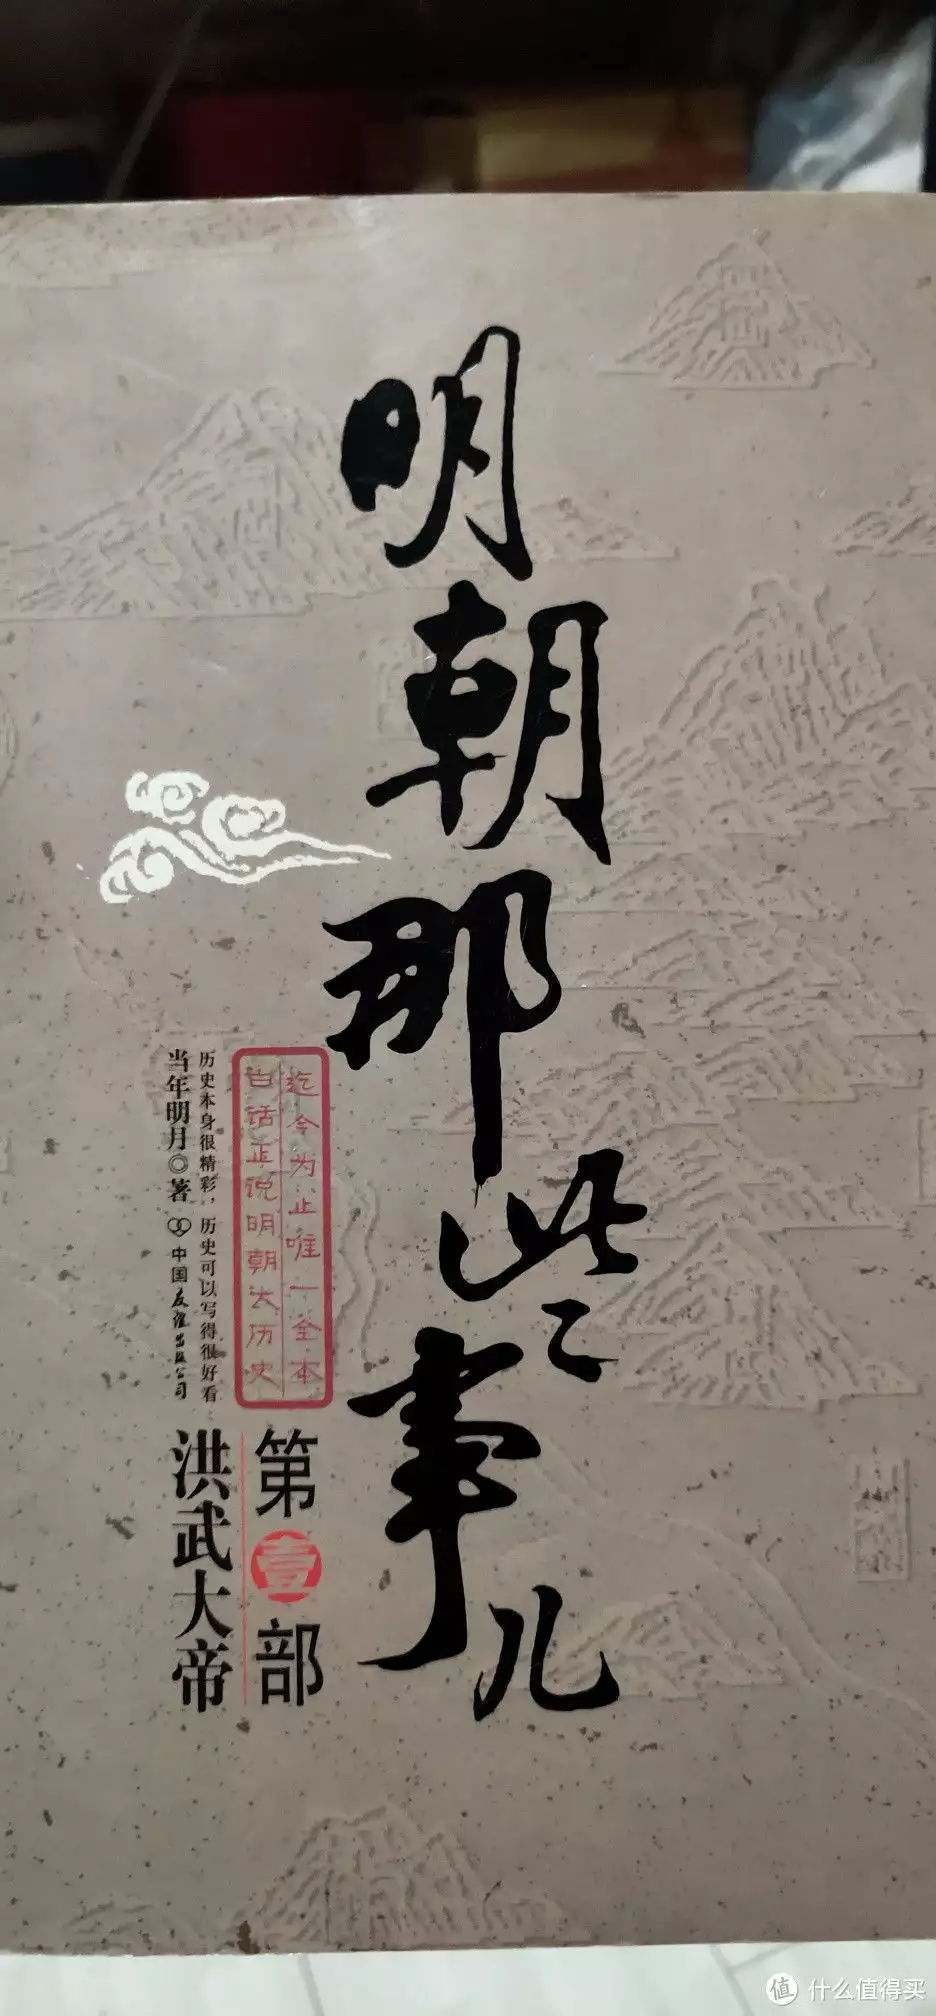 明朝那些事儿
迄今为止唯一全本
白话正说明朝大历史
第壹部
洪武大帝
历史本身很精彩，历史可以写得很好看
当年明月◎著
中国友谊出版公司
值 什么值得买